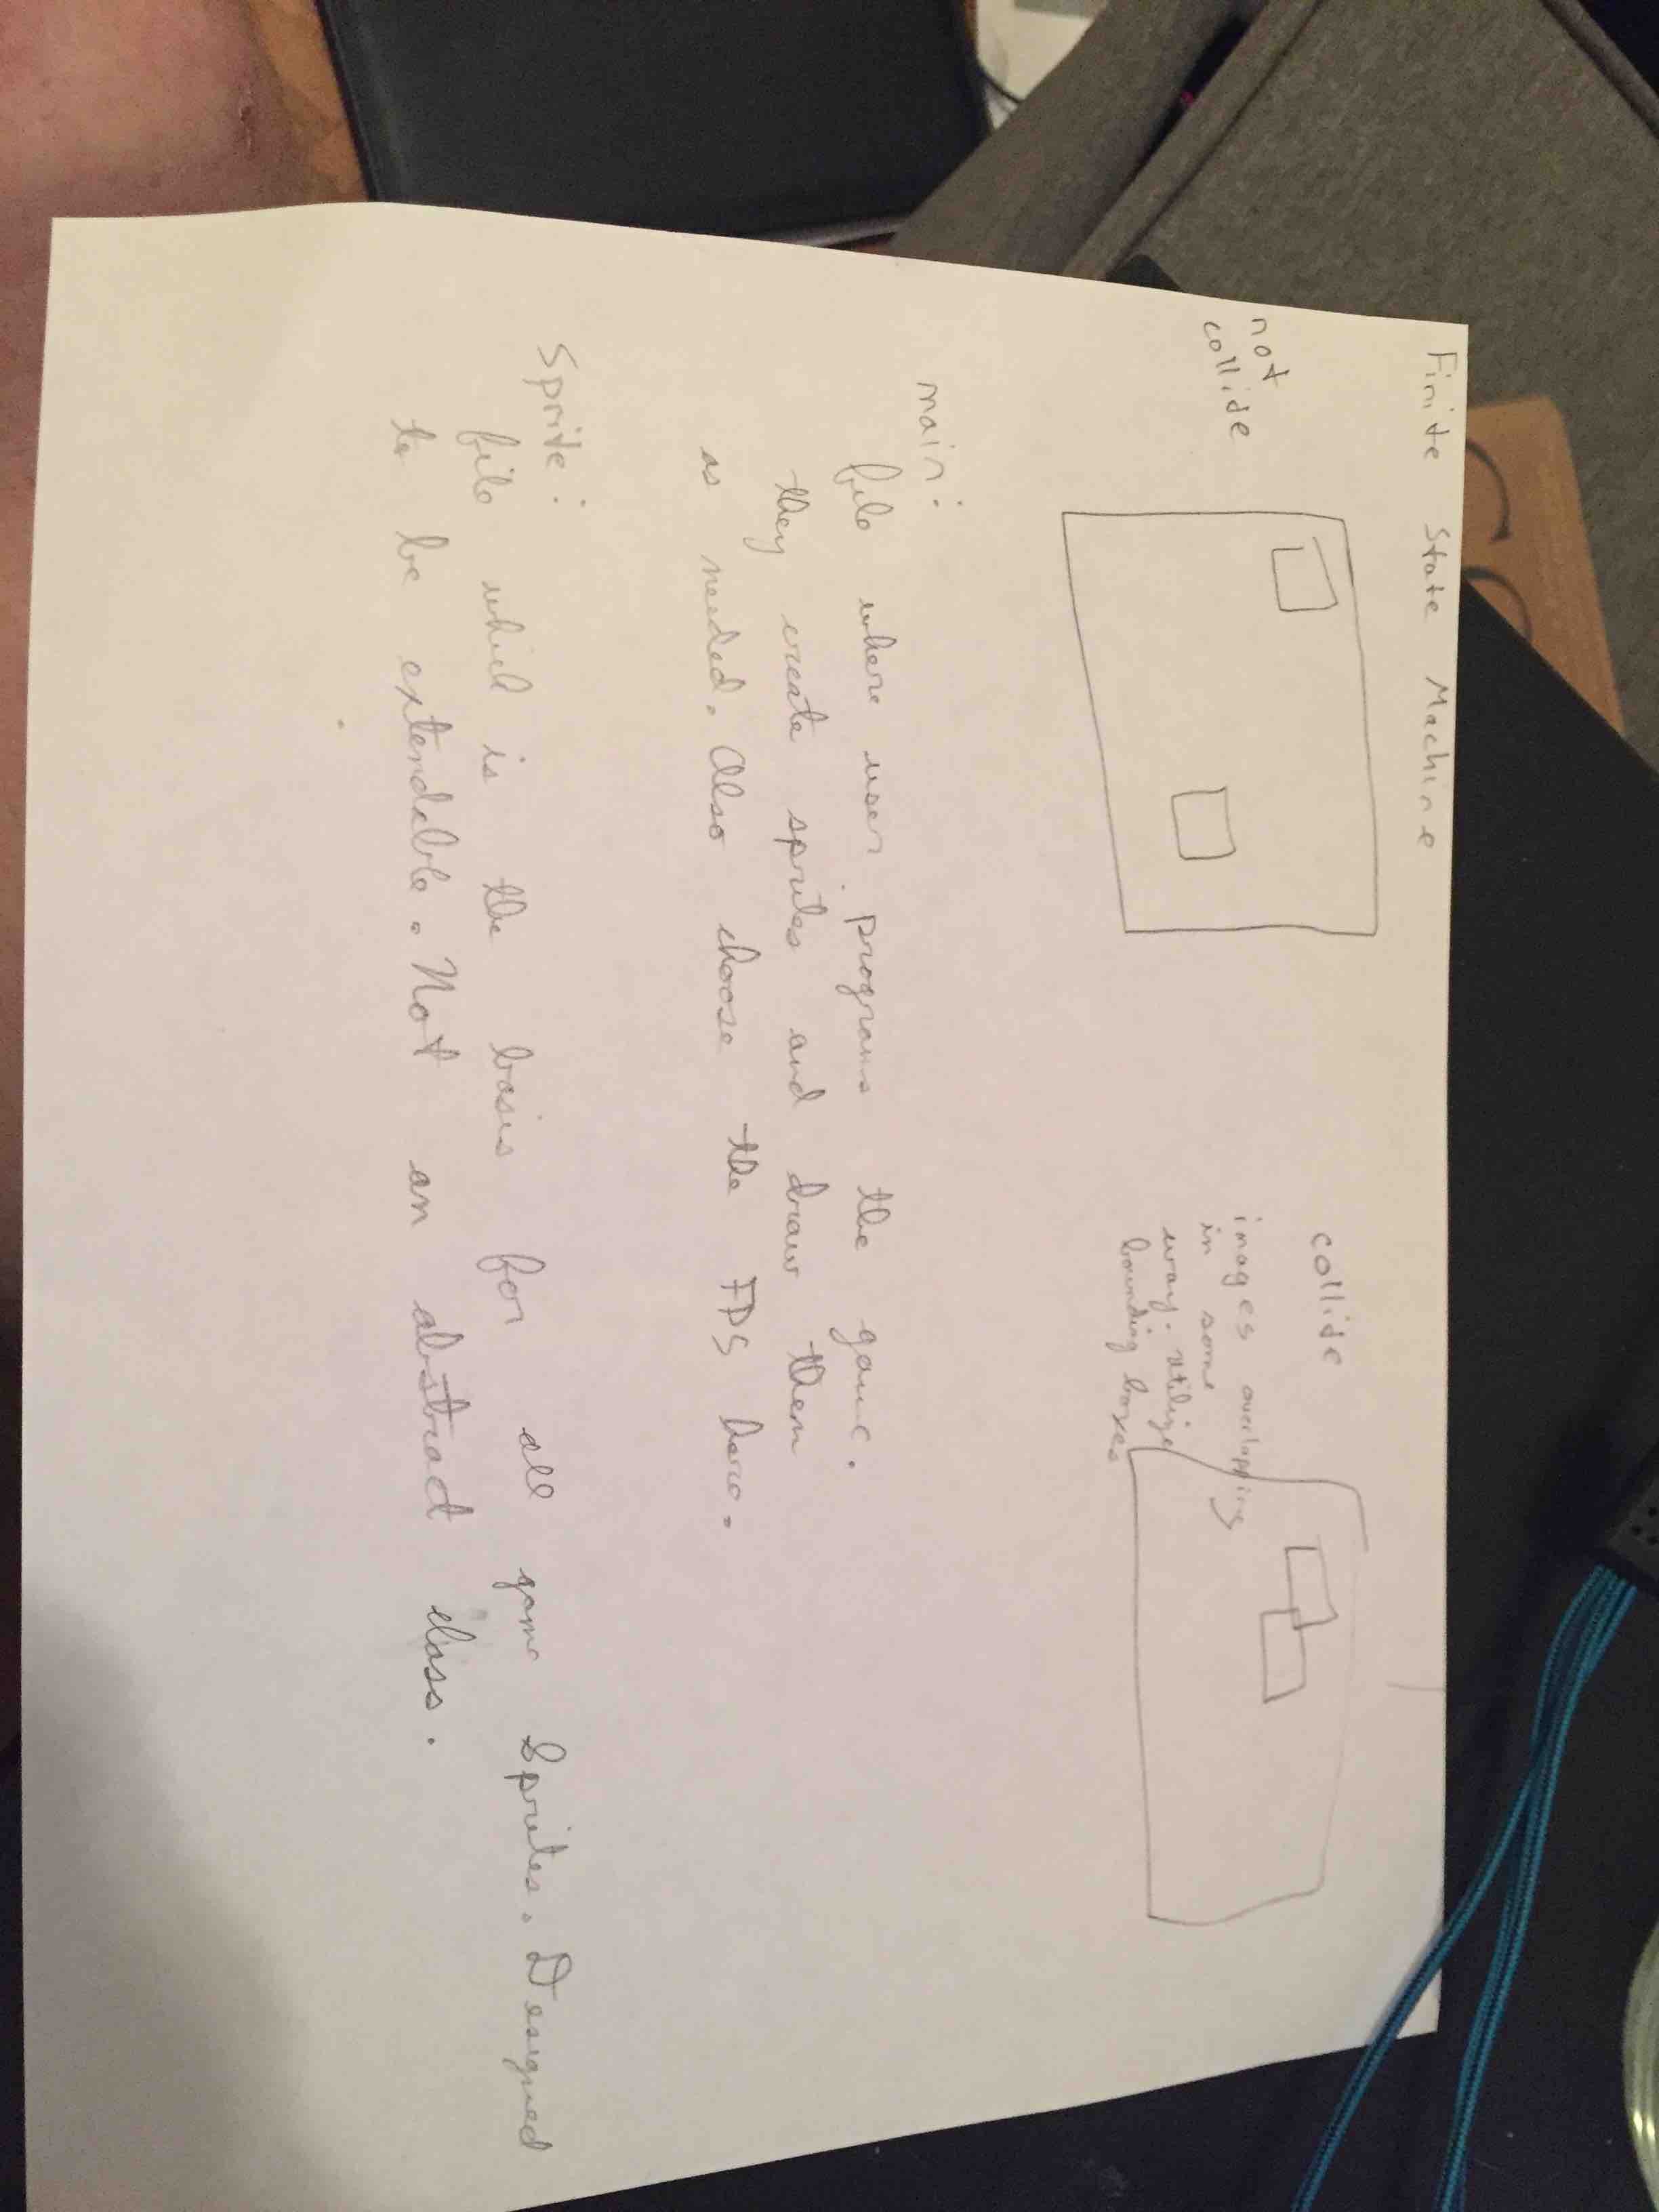 Finite State Machine
not
collide
collide
images overlapping
in some
way. utilize
bounding boxes
main:
file where user programs the game.
they create sprites and draw them
as needed. Also choose the FPS here.
Sprite:
file which is the basis for all game Sprites. Designed
to be extendable. Not an abstract class.